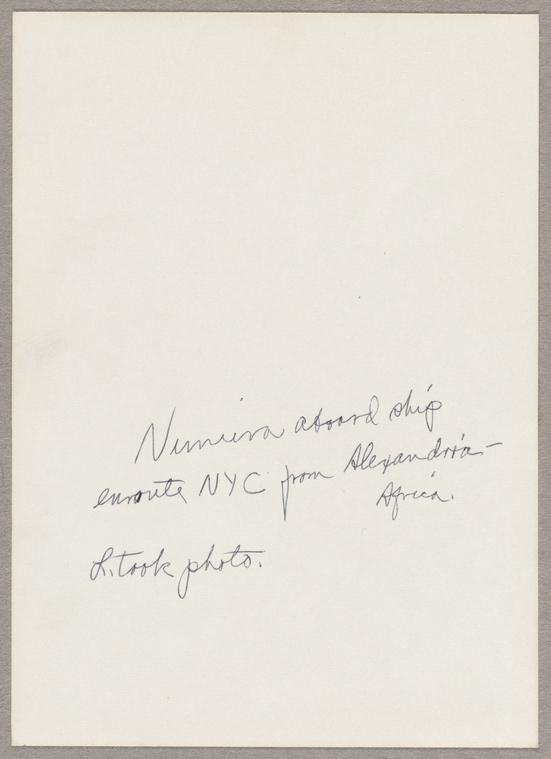 Numeiva aboard ship
enroute NYC from Alexandria-
Africa.
L. took photo.